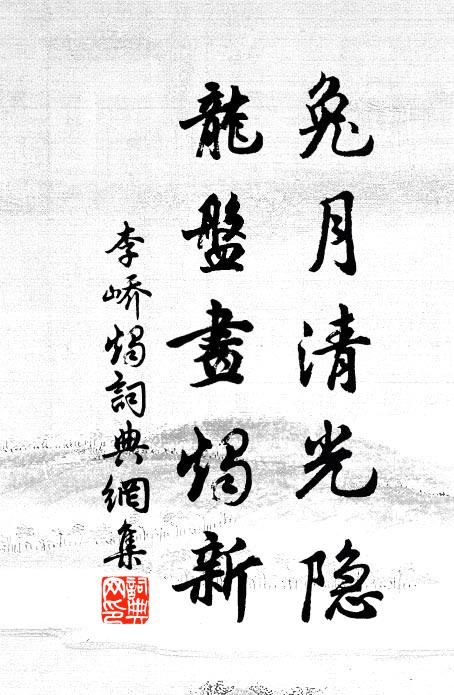 兔月清光隐
龍盤畫燭新
李嶠燭詞典網集
詞典网印